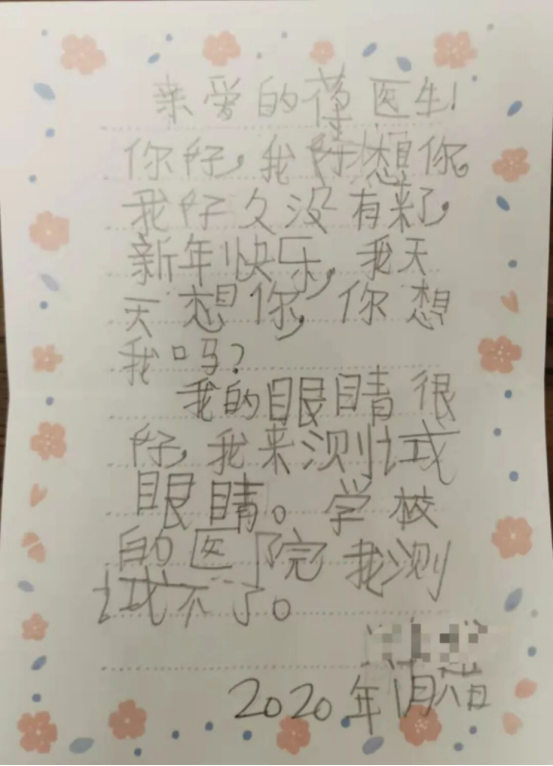 亲爱的薄医生!
你好,我好想你。
我好久没有来了,
新年快乐,我天
天想你,你想
我吗?
我的眼睛很
好,我来测试
眼睛。学校
的医院我测
试不了。
2020年1月六日